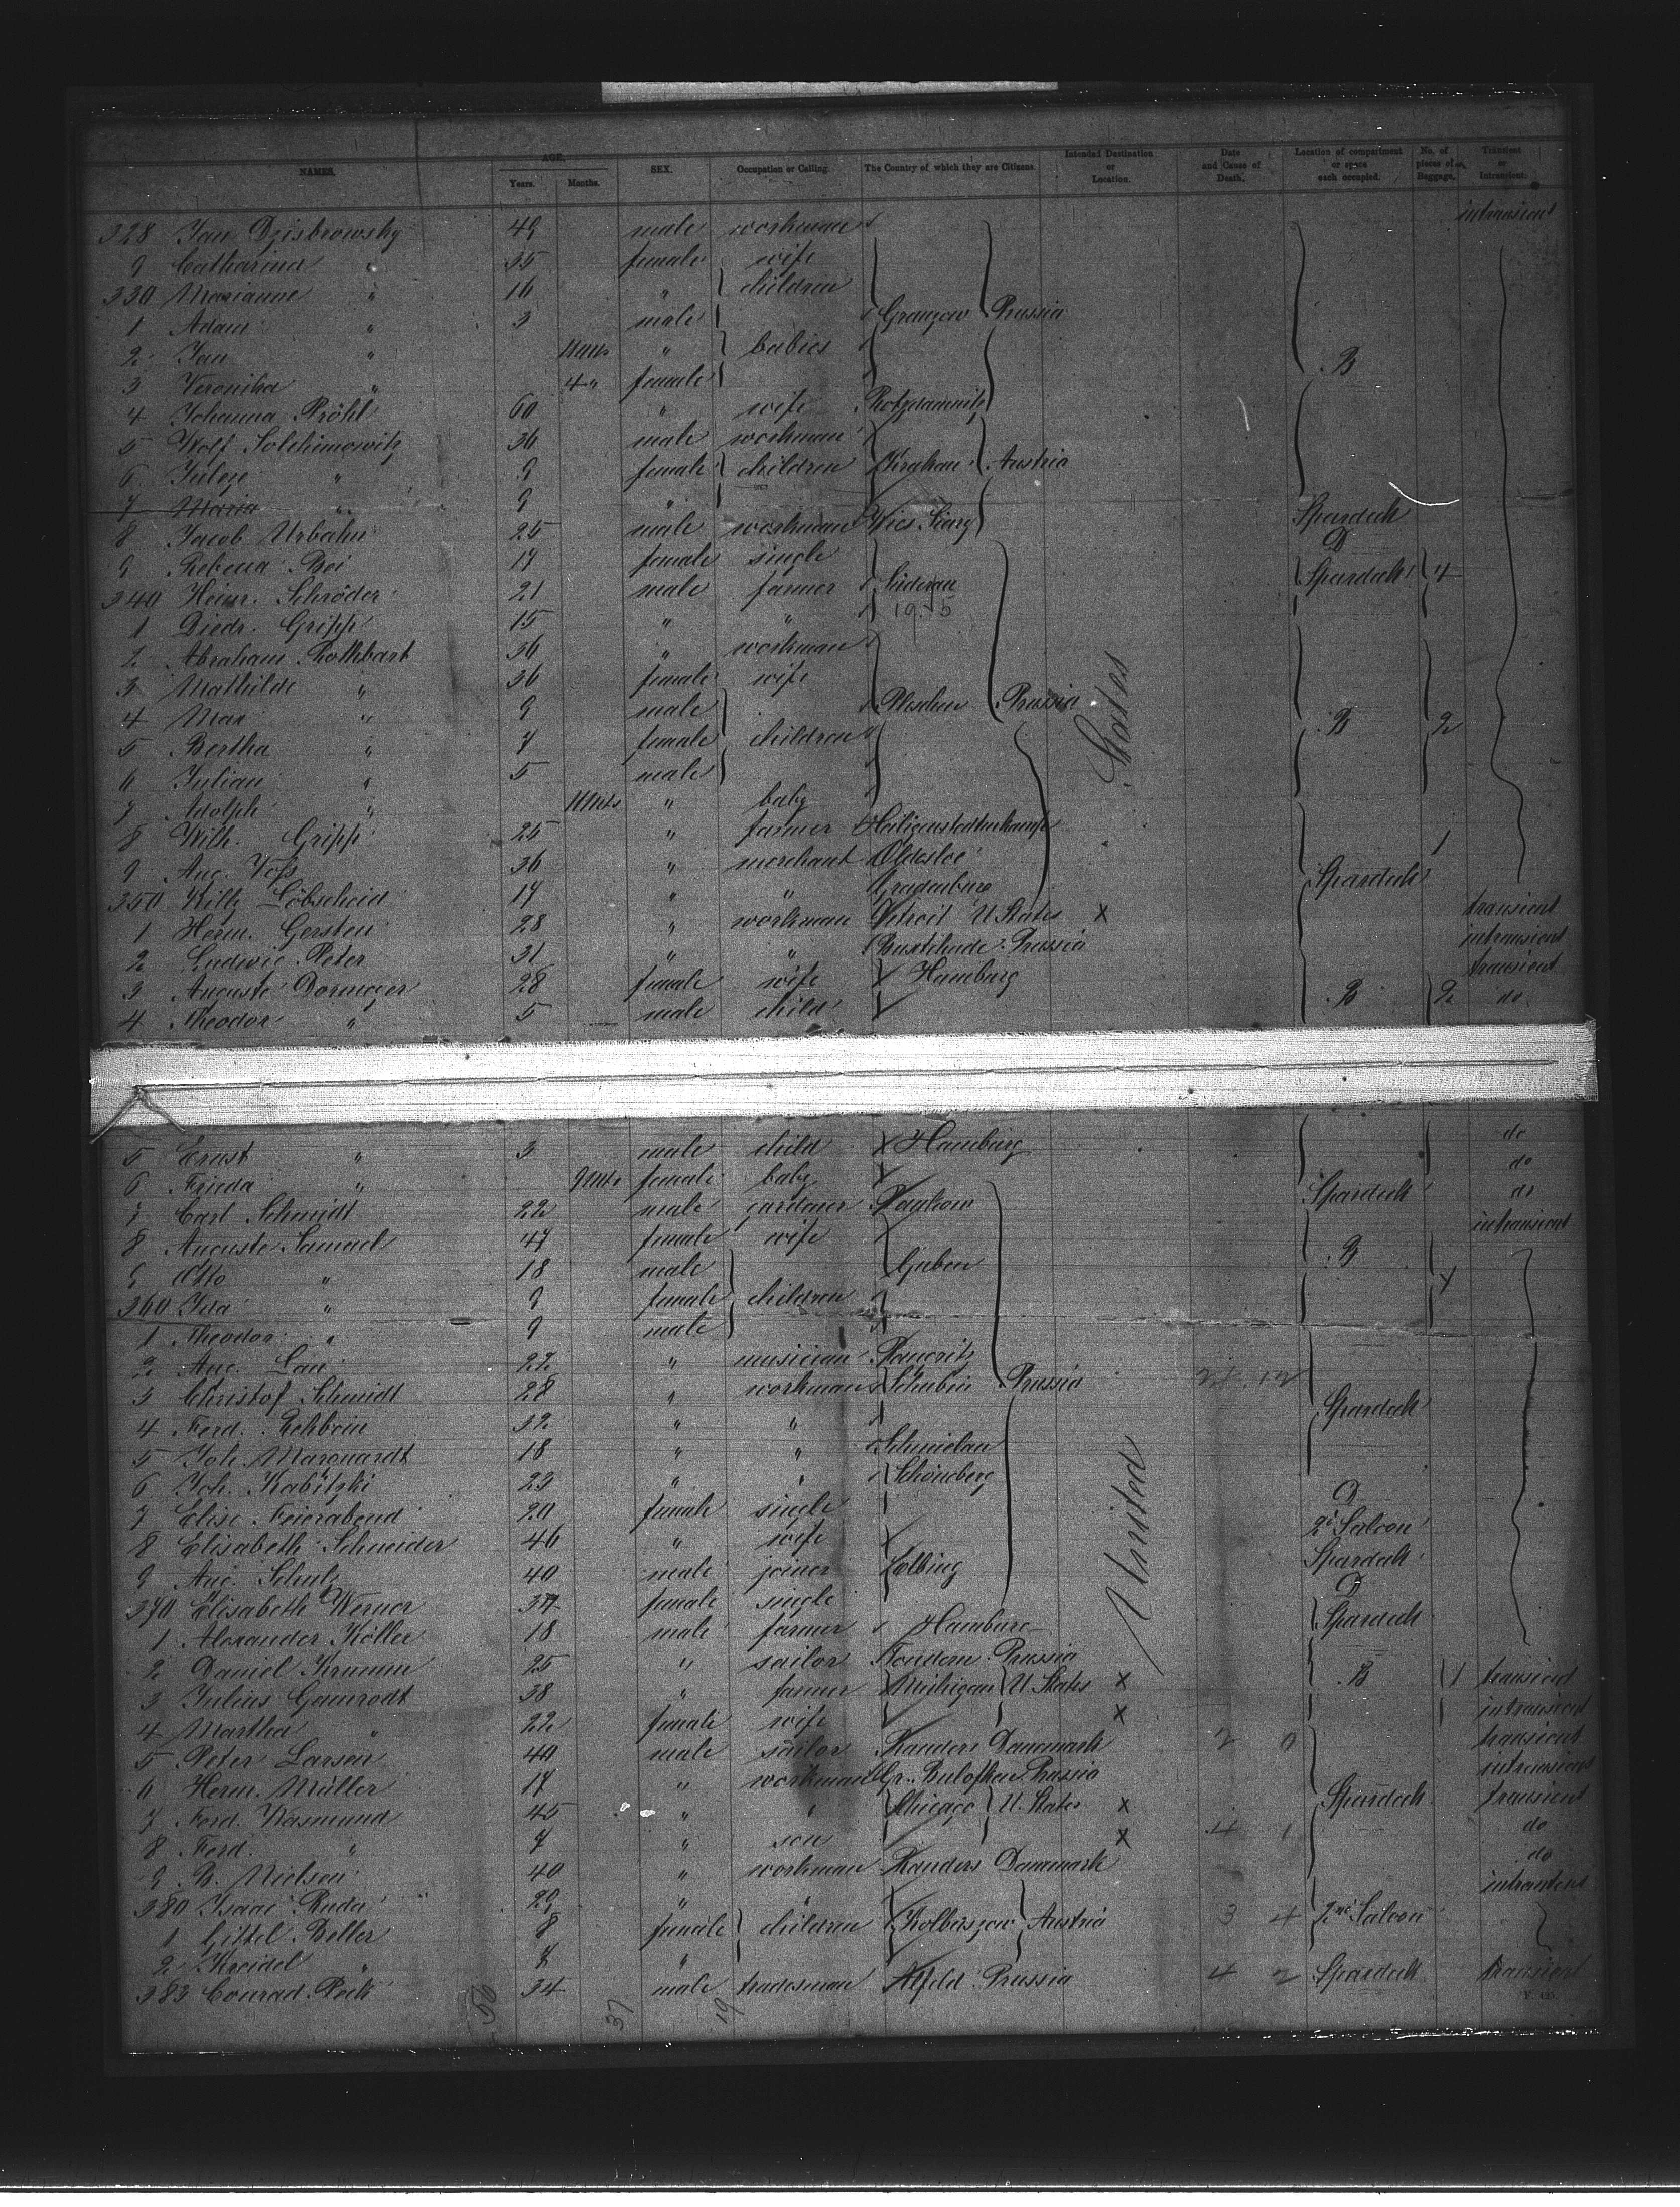 NAMES. AGE. Years. Months. SEX. Occupation or Calling. The Country of which they are Citizens. Intended Destination or Location. Date and Cause of Death. Location of compartment or space each occupied. No. of pieces of Baggage. Transient or Intransient.
328 Jan Dzisbrowsky 49 male workman intransient
9 Catharina " 35 female wife
330 Marianne " 16 " children
1 Adam " 3 male Granzow Prussia
2 Jan " 11 mts " babies
3 Veronika " 4 " female B
4 Johanna Pröhl 60 " wife
5 Wolf Solchimowitz 36 male workman
6 Julege " 9 female children Krakau Austria
7 Maria " 9 "
8 Jacob Urbahn 25 male workman Spardeck
9 Rebecca Bei 17 female single D
340 Heinr. Schröder 21 male farmer Süderau Spardeck 4
1 Diedr. Gripp 15 " " 19.5
2 Abraham Rothbart 36 " workman
3 Mathilde " 36 female wife
4 Max " 9 male Pleschen Prussia B 2
5 Bertha " 7 female children
6 Julian " 5 male
7 Adolph " 11 mts " baby
8 Wilh. Gripp 25 " farmer Heiligenstedtenkamp 1
9 Aug. Voß 36 " merchant Oldesloe Spardeck
350 Willy Löbscheid 17 " "
1 Herm. Gersten 28 " workman Detroit U States X transient
2 Ludwig Peter 31 " " Buxtehude Prussia intransient
3 Auguste Dormeyer 28 female wife Hamburg transient
4 Theodor " 5 male child B 2 do
5 Ernst " 3 male child Hamburg do
6 Frieda " 9 mts female baby do
7 Carl Schmidt 22 male gardener Spardeck do
8 Auguste Samuel 47 female wife intransient
9 Otto " 18 male Guben B
360 Ida " 9 female children
1 Theodor " 9 male
2 Aug. Lau 22 " musician
3 Christof Schmidt 28 " workman Schubin Prussia
4 Ferd. Rehbein 32 " " Spardeck
5 Joh. Marquardt 18 " " Schmielau
6 Joh. Kabitzki 23 " " Schöneberg
7 Elise Feierabend 20 female single D
8 Elisabeth Schneider 46 " wife 2d Saloon
9 Aug. Schulz 40 male joiner Elbing Spardeck
370 Elisabeth Werner 37 female single D
1 Alexander Köller 18 male farmer Hamburg Spardeck
2 Daniel Krumm 25 " sailor Tondern Prussia
3 Julius Gamrodt 38 " farmer Michigan U. States X B 1 transient
4 Martha " 22 female wife X intransient
5 Peter Larsen 40 male sailor Randers Danemark transient
6 Herm. Müller 17 " workman Prussia intransient
7 Ferd. Rasmund 45 " " Chicago U. States X Spardeck transient
8 Ferd. " 7 " son X do
9 B. Nielsen 40 " workman Randers Danemark do
380 Isaac Ruda 29 " " intransient
1 Gittel Beller 8 female children Kolbuszow Austria 2nd Saloon
2 Kreidel " 7 "
383 Conrad Peck 34 male tradesman Alfeld Prussia Spardeck transient
United States
50
37
19